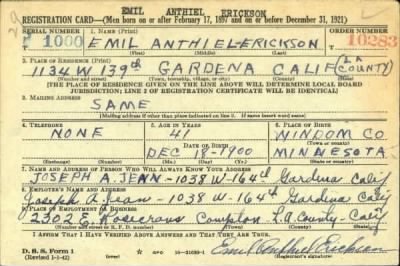 EMIL ANTHIEL ERICKSON
REGISTRATION CARD—(Men born on or after February 17, 1897 and on or before December 31, 1921)
SERIAL NUMBER
1. NAME (Print)
ORDER NUMBER
T 1000
EMIL ANTHIEL ERICKSON
10283
(First) (Middle) (Last)
2. PLACE OF RESIDENCE (Print)
1134 W 139th GARDENA CALIF (LA COUNTY)
(Number and street) (Town, township, village, or city) (County) (State)
[THE PLACE OF RESIDENCE GIVEN ON THE LINE ABOVE WILL DETERMINE LOCAL BOARD
JURISDICTION; LINE 2 OF REGISTRATION CERTIFICATE WILL BE IDENTICAL]
3. MAILING ADDRESS
SAME
[Mailing address if other than place indicated on line 2. If same insert word same]
4. TELEPHONE
5. AGE IN YEARS
6. PLACE OF BIRTH
NONE
41
WINDOM CO
DATE OF BIRTH
(Town or county)
DEC 18-1900
MINNESOTA
(Exchange) (Number)
(Mo.) (Day) (Yr.)
(State or country)
7. NAME AND ADDRESS OF PERSON WHO WILL ALWAYS KNOW YOUR ADDRESS
JOSEPH A JENN-1038 W-164th Gardena Calif
8. EMPLOYER'S NAME AND ADDRESS
Joseph A. Jean-1038-W-164th Gardena Calif
9. PLACE OF EMPLOYMENT OR BUSINESS
2302 E. Rosecrans Compton L.A. County-Calif
(Number and street or R. F. D. number) (Town) (County) (State)
I AFFIRM THAT I HAVE VERIFIED ABOVE ANSWERS AND THAT THEY ARE TRUE.
D. S. S. Form 1
(Revised 1-1-42)
(over)
GPO 16-21630-1
Emil Anthiel Erickson